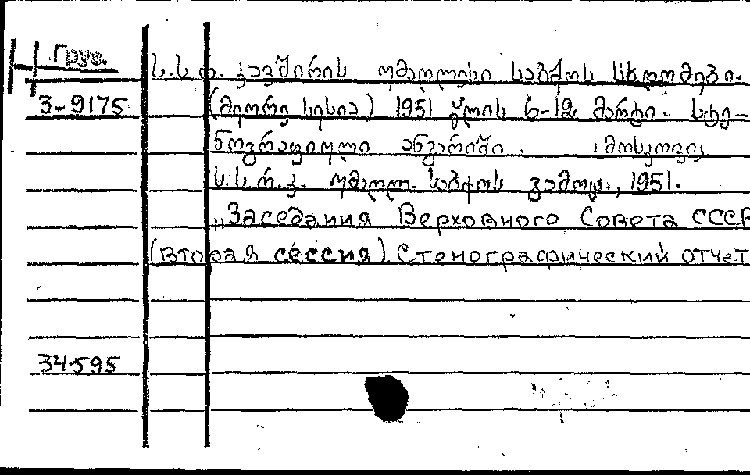 Груз.
ს.ს.რ. კავშირის უმაღლესი საბჭოს სხდომები.
3-9175 (მეორე სესია) 1951 წლის 6-12 მარტი. სტე-
ნოგრაფიული ანგარიში. მოსკოვი
ს.ს.რ.კ. უმაღლ. საბჭოს გამოც., 1951.
„Заседания Верховного Совета СССР
(вторая сессия). Стенографический отчет
34595